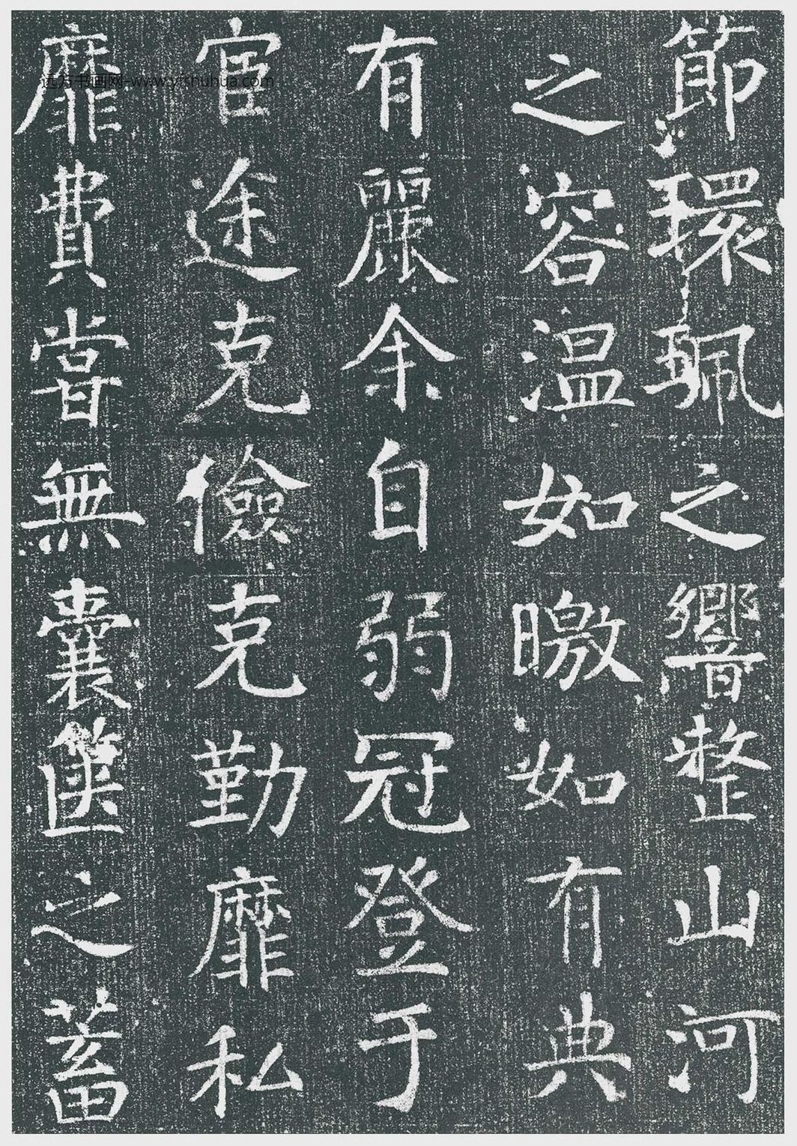 節環珮之響整山河
之容温如曒如有典
有麗余自弱冠登于
宦途克儉克勤靡私
靡費嘗無囊篋之蓄
远方书画网-www.yfshuhua.com